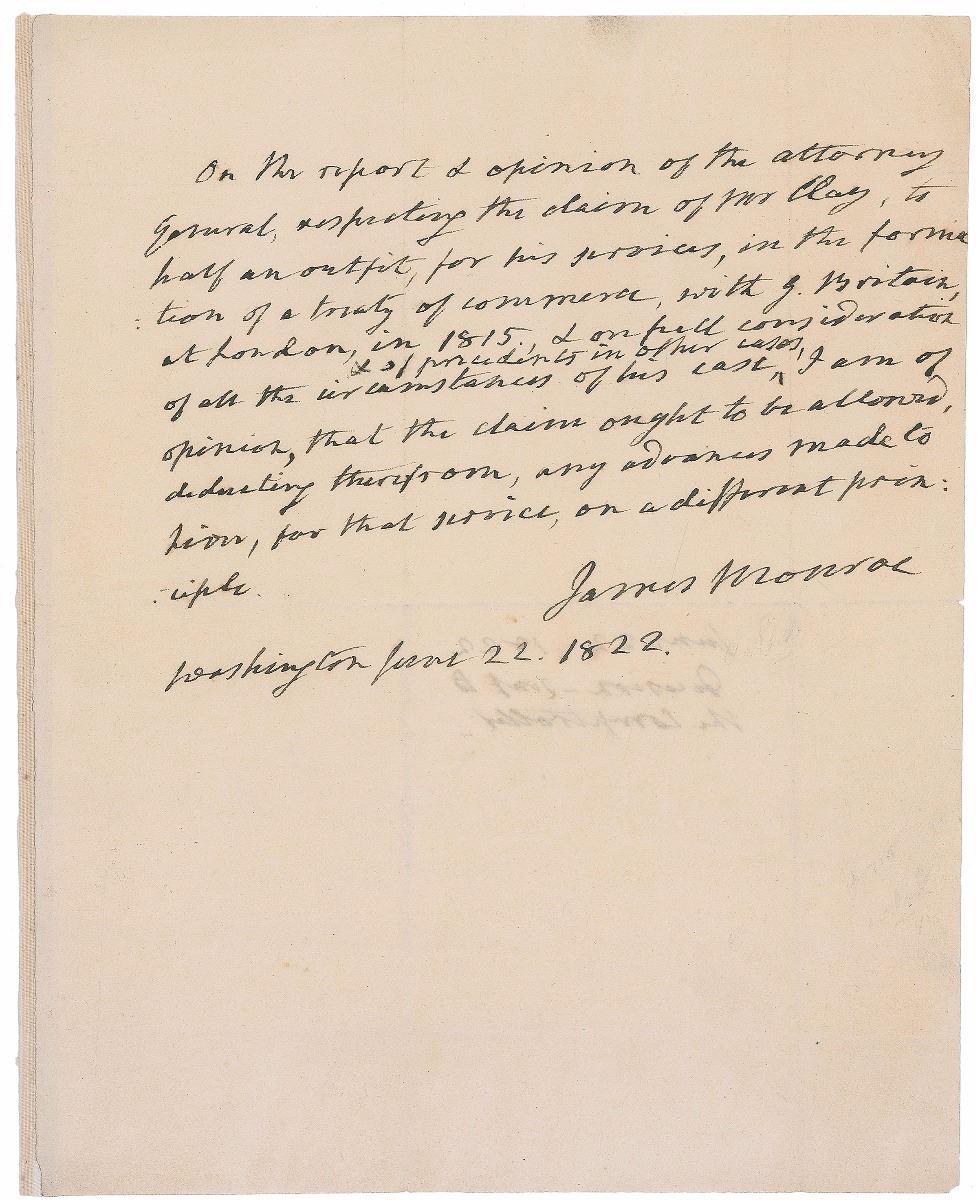 On the report & opinion of the attorney
General, respecting the claim of Mr Clay, to
half an outfit, for his services, in the forma
:tion of a treaty of commerce, with G. Britain,
at London, in 1815., & on full consideration
& of precedents in other cases,
of all the circumstances of his case, ^ I am of
opinion, that the claim ought to be allowed,
deducting therefrom, any advances made to
him, for that service, on a different prin:
:ciple.
James Monroe
Washington June 22. 1822.